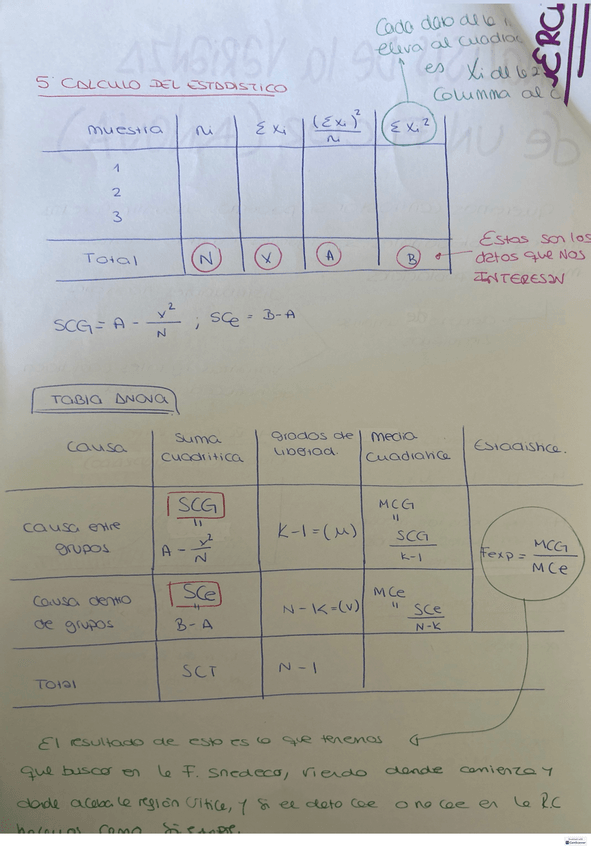 Cada dato de la
eleva al cuadrad
es Xi de la 2
Columma al C
5 CALCULO DEL ESTADISTICO
muestra ni Σxi (Σxi)²/ni Σxi²
1
2
3
Total N X A B
Estas son los
datos que nos
INTERESAN
SCG = A - x²/N ; SCe = B-A
TABLA ANOVA
causa suma cuadrática grados de liberad media cuadrática Estadístico.
causa entre grupos SCG = A - x²/N K-1=(μ) MCG = SCG/K-1 Fexp = MCG/MCe
causa dentro de grupos SCe = B-A N-K=(V) MCe = SCe/N-K
Total SCT N-1
El resultado de esto es lo que tenemos
que buscar en la F. Snedeco, viendo donde comienza y
donde acaba la región crítica, y si el dato cae o no cae en la RC
como siempre.